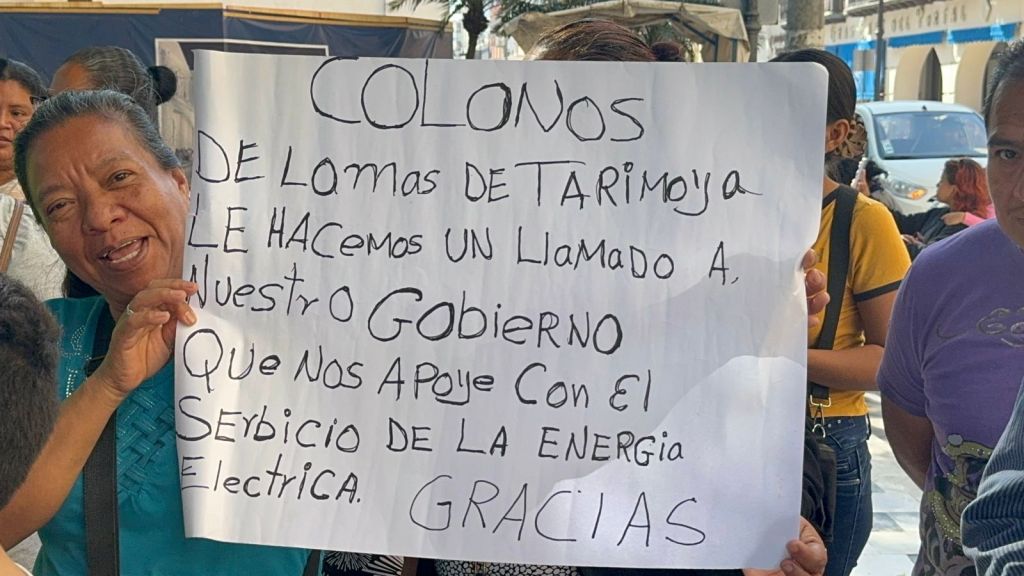 COLONOS
DE LOMAS DE TARIMOYA
LE HACEMOS UN LLAMADO A,
NUESTRO GOBIERNO
QUE NOS APOYE CON El
SERBICIO DE LA ENERGIA
ELECTRICA. GRACIAS